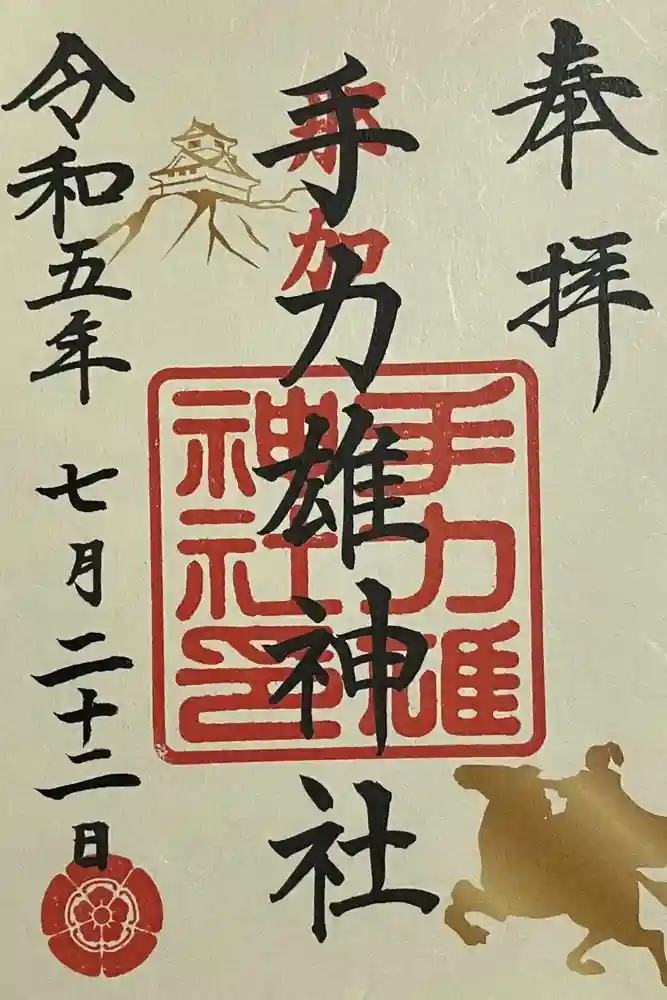 奉拝
那加
手力雄神社
手力雄
神社印
令和五年七月二十二日